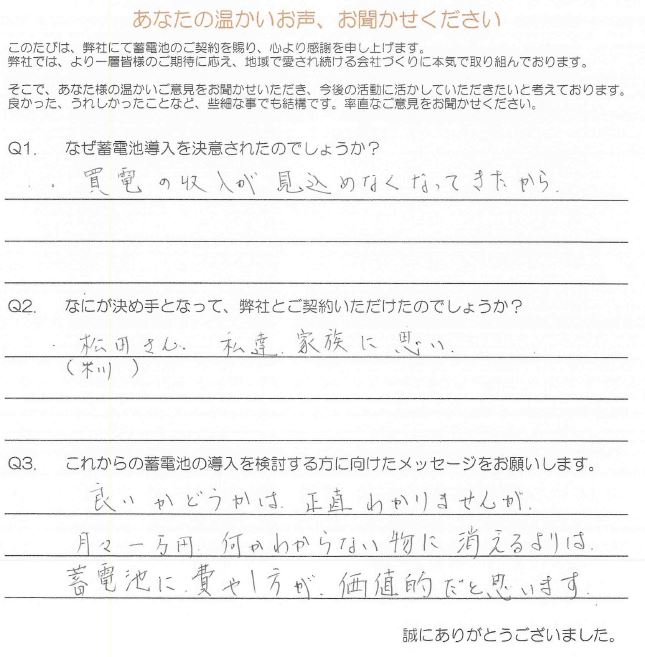 あなたの温かいお声、お聞かせください
このたびは、弊社にて蓄電池のご契約を賜り、心より感謝を申し上げます。
弊社では、より一層皆様のご期待に応え、地域で愛され続ける会社づくりに本気で取り組んでおります。
そこで、あなた様の温かいご意見をお聞かせいただき、今後の活動に活かしていただきたいと考えております。
良かった、うれしかったことなど、些細な事でも結構です。率直なご意見をお聞かせください。
Q1. なぜ蓄電池導入を決意されたのでしょうか？
買電の収入が見込めなくなってきたから.
Q2. なにが決め手となって、弊社とご契約いただけたのでしょうか？
松田さん. 私達.家族に思い.
Q3. これからの蓄電池の導入を検討する方に向けたメッセージをお願いします。
良いかどうかは.正直わかりませんが.
月々一万円.何かわからない物に消えるよりは.
蓄電池に.費やし方が.価値的だと思います.
誠にありがとうございました。